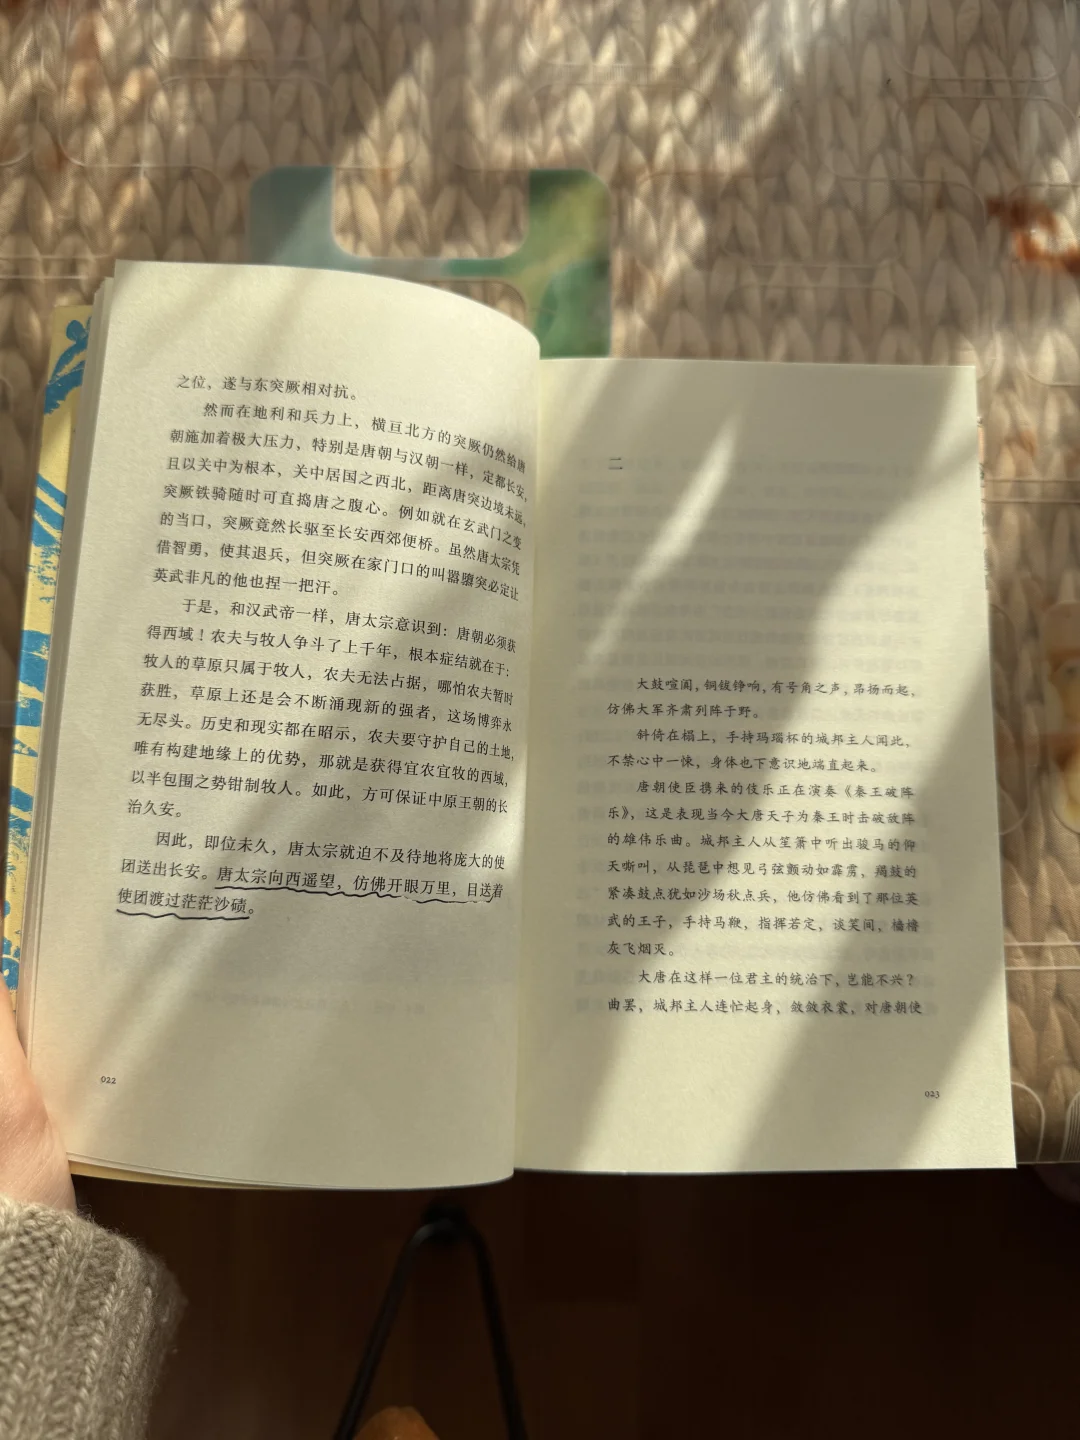 之位，遂与东突厥相对抗。
然而在地利和兵力上，横亘北方的突厥仍然给唐
朝施加着极大压力，特别是唐朝与汉朝一样，定都长安，
且以关中为根本，关中居国之西北，距离唐突边境未远，
突厥铁骑随时可直捣唐之腹心。例如就在玄武门之变
的当口，突厥竟然长驱至长安西郊便桥。虽然唐太宗凭
借智勇，使其退兵，但突厥在家门口的叫嚣隳突必定让
英武非凡的他也捏一把汗。
于是，和汉武帝一样，唐太宗意识到：唐朝必须获
得西域！农夫与牧人争斗了上千年，根本症结就在于：
牧人的草原只属于牧人，农夫无法占据，哪怕农夫暂时
获胜，草原上还是会不断涌现新的强者，这场博弈永
无尽头。历史和现实都在昭示，农夫要守护自己的土地，
唯有构建地缘上的优势，那就是获得宜农宜牧的西域，
以半包围之势钳制牧人。如此，方可保证中原王朝的长
治久安。
因此，即位未久，唐太宗就迫不及待地将庞大的使
团送出长安。唐太宗向西遥望，仿佛开眼万里，目送着
使团渡过茫茫沙碛。
022
二
大鼓喧阗，铜钹铮响，有号角之声，昂扬而起，
仿佛大军齐肃列阵于野。
斜倚在榻上，手持玛瑙杯的城邦主人闻此，
不禁心中一悚，身体也下意识地端直起来。
唐朝使臣携来的伎乐正在演奏《秦王破阵
乐》，这是表现当今大唐天子为秦王时击破敌阵
的雄伟乐曲。城邦主人从笙箫中听出骏马的仰
天嘶叫，从琵琶中想见弓弦颤动如霹雳，羯鼓的
紧凑鼓点犹如沙场秋点兵，他仿佛看到了那位英
武的王子，手持马鞭，指挥若定，谈笑间，樯橹
灰飞烟灭。
大唐在这样一位君主的统治下，岂能不兴？
曲罢，城邦主人连忙起身，敛敛衣裳，对唐朝使
023